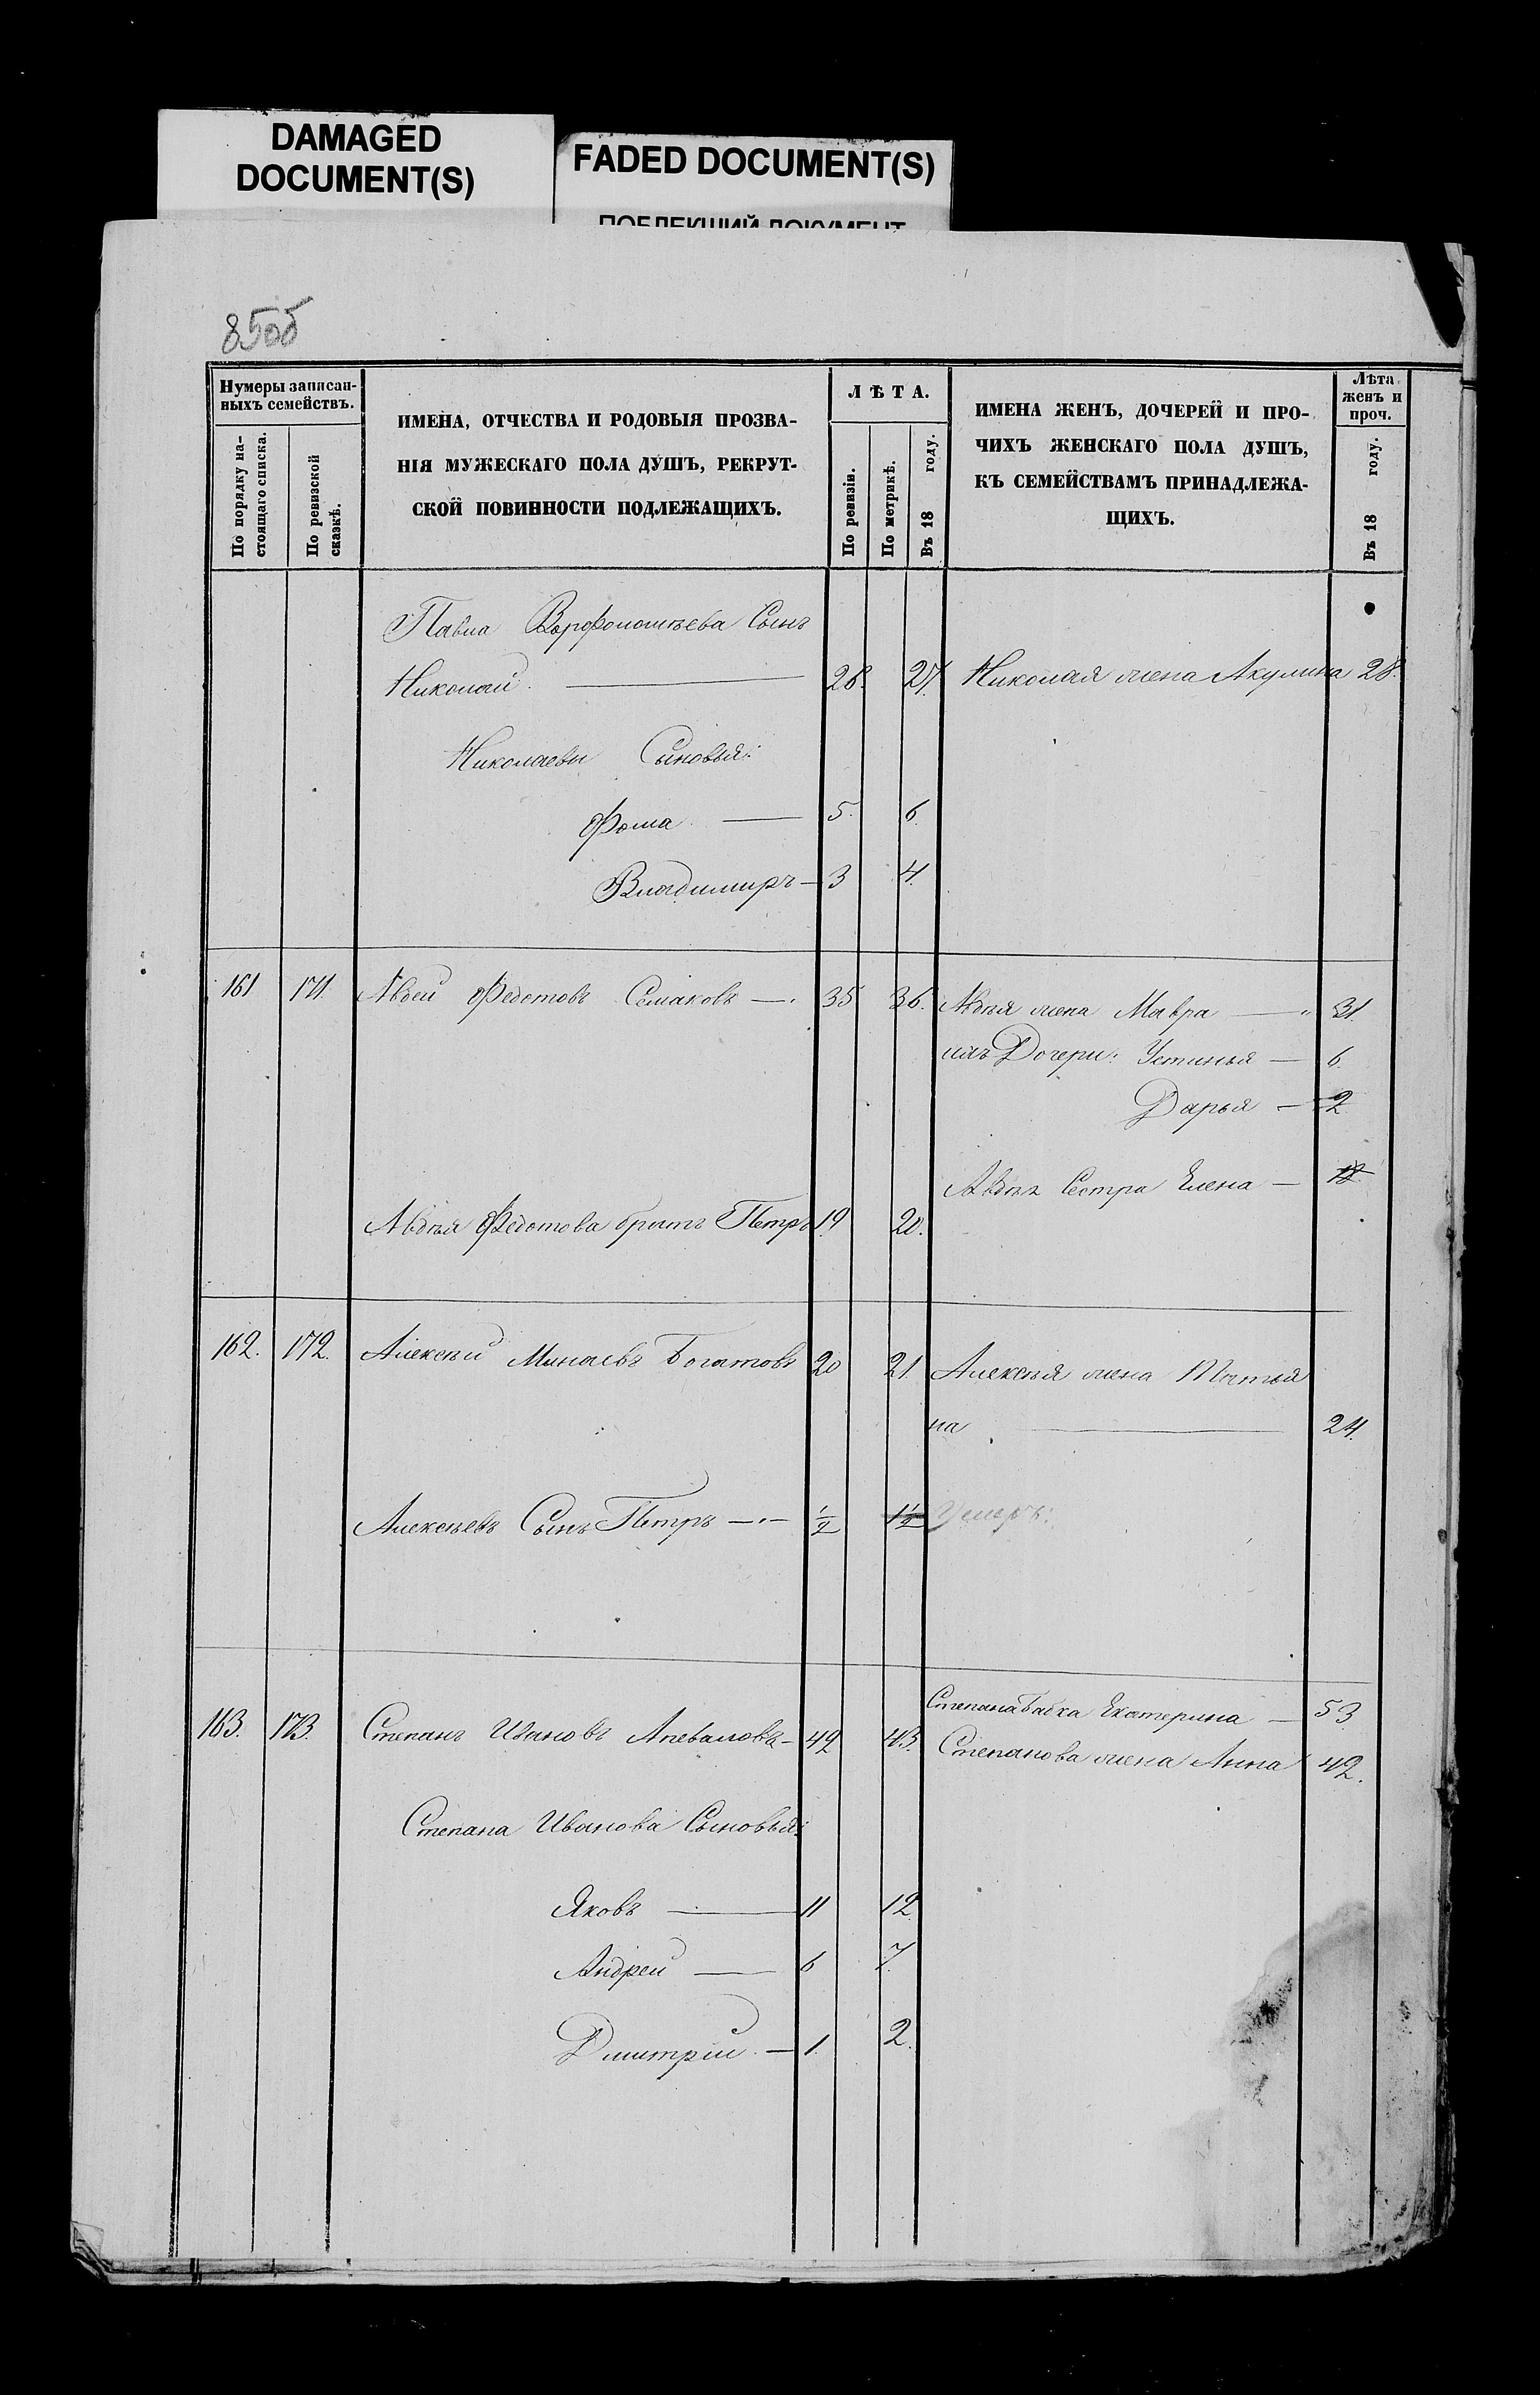 DAMAGED
DOCUMENT(S)
FADED DOCUMENT(S)
ПОБЛЕКШИЙ ДОКУМЕНТ
85об
Нумеры записан-
ныхъ семействъ.
По порядку на-
стоящаго списка.
По ревизской
сказкѣ.
ИМЕНА, ОТЧЕСТВА И РОДОВЫЯ ПРОЗВА-
НІЯ МУЖЕСКАГО ПОЛА ДУШЪ, РЕКРУТ-
СКОЙ ПОВИННОСТИ ПОДЛЕЖАЩИХЪ.
ЛѢТА.
По ревизіи.
По метрикѣ.
Въ 18 году.
ИМЕНА ЖЕНЪ, ДОЧЕРЕЙ И ПРО-
ЧИХЪ ЖЕНСКАГО ПОЛА ДУШЪ,
КЪ СЕМЕЙСТВАМЪ ПРИНАДЛЕЖА-
ЩИХЪ.
Лѣта
женъ и
проч.
Въ 18 году.
Павла Варфоломѣева Сынъ
Николай — 26. 27. Николая жена Акулина 28.
Николаевы Сыновья:
Фома — 5. 6.
Владимиръ — 3 4.
161 171. Авдей Федотовъ Семаковъ — 35 36. Авдѣя жена Мавра — 31.
ихъ Дочери: Устинья — 6.
Дарья — 2
Авдѣя Сестра Елена — 18
Авдѣя Федотова братъ Петръ 19. 20.
162. 172. Алексѣй Минаевъ Богатовъ 20 21. Алексѣя жена Татья
на — 24.
Алексѣевъ Сынъ Петръ — 1/2 1 1/2 Умеръ.
Степана бабка Екатерина — 53
163. 173. Степанъ Ивановъ — 42 43. Степанова жена Анна 42.
Степана Иванова Сыновья:
Яковъ — 11 12.
Андрей — 6 7.
Дмитрий — 1. 2.